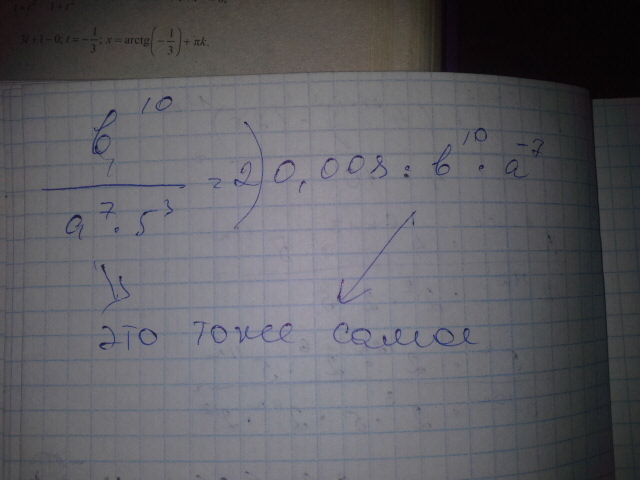 3t+1=0; t=-1/3; x=arctg(-1/3)+πk.
в^10
/ a^7 · 5^3 = 2) 0,008 : в^10 · a^-7
это тоже самое